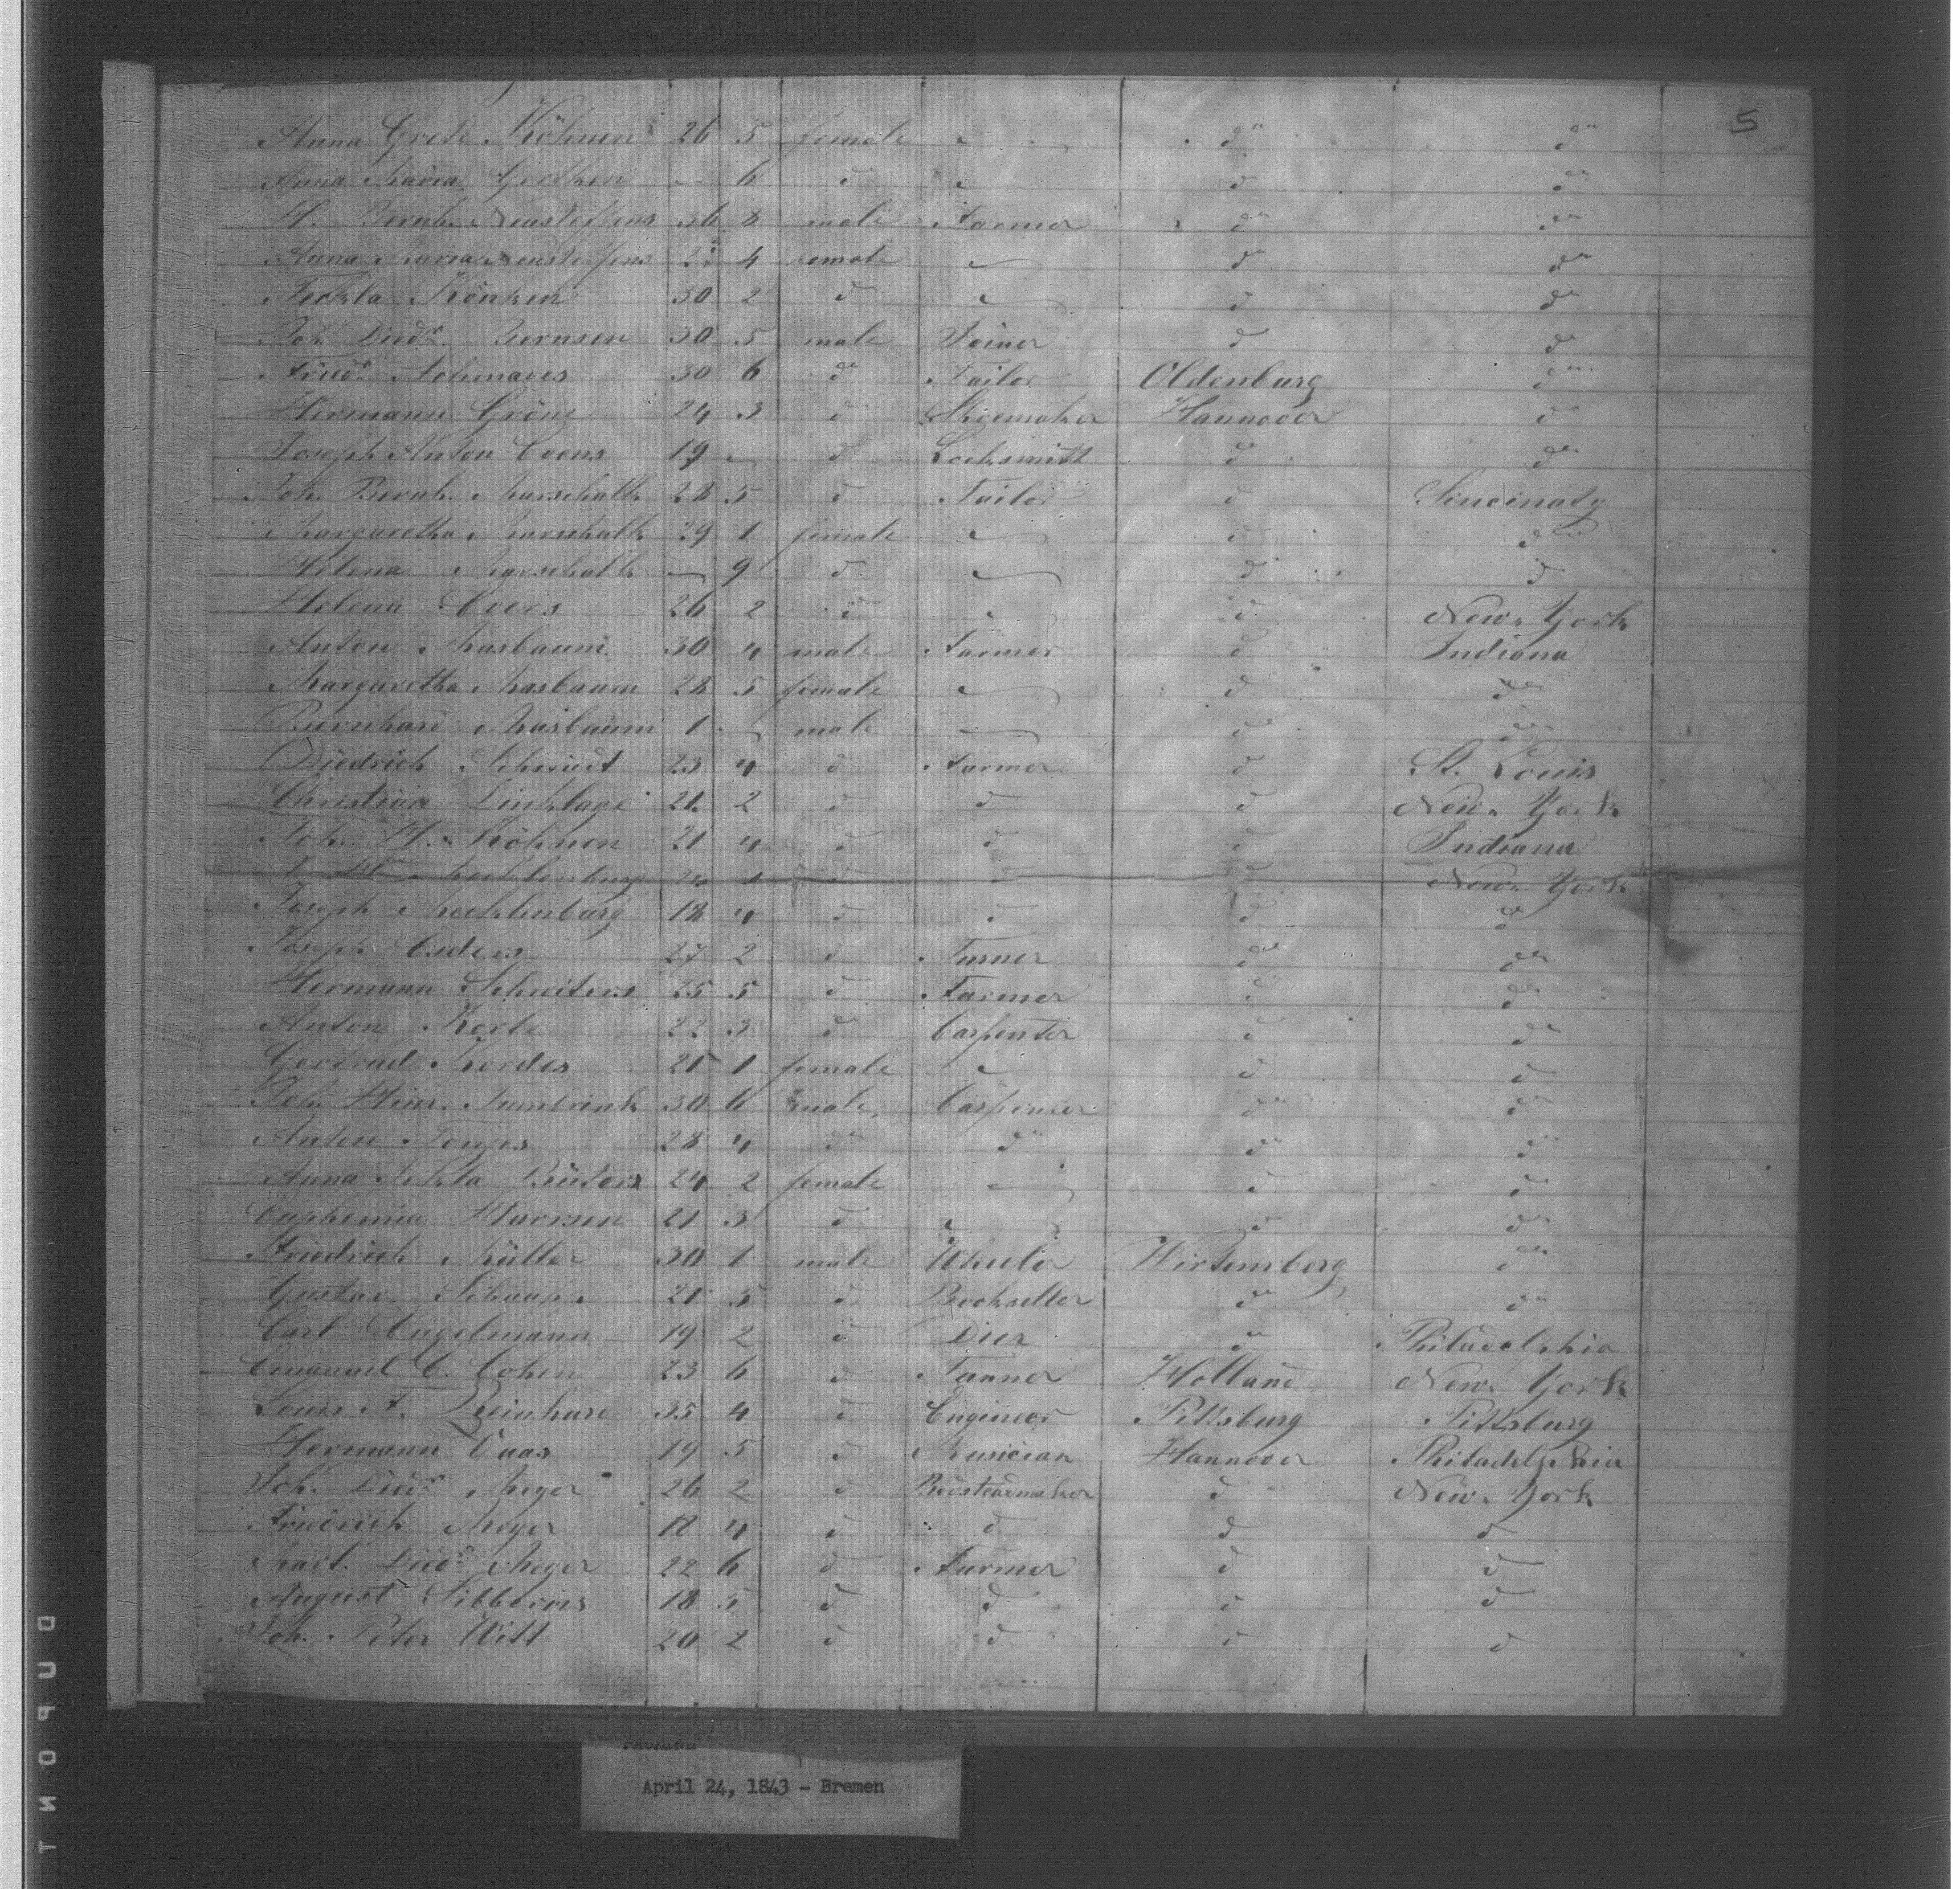 5
Anna Grete Köhnen 26 5 female — do do
Anna Maria Gerken — 6 d — d d
H. Bernh. Neusteffens 36 8 male Farmer do do
Anna Maria Neusteffens 4 female — do do
Teckla Könken 30 2 d — d do
Joh Diedr. Bernsen 30 5 male Joiner d do
Friedr. Schmaces 30 6 do Tailor Oldenburg do
Hermann Gröne 24 3 d Shoemaker Hannover d
Joseph Anton Evens 19 — d Locksmith d do
Joh. Bernh. Marschalk 28 5 d Tailor d Sincinaty
Margaretha Marschalk 29 1 female — d do
Helena Marschalk — 9 d — d d
Helena Evers 26 2 d — d New York
Anton Masbaum 30 4 male Farmer d Indiana
Margaretha Masbaum 28 5 female — d do
Bernhard Masbaum 1 — male — do do
Diedrich Schmidt 23 4 d Farmer d St. Louis
Christian Dinklage 21 2 d d d New York
Joh. H. Köhnen 21 4 d d d Indiana
H. Mecklenburg d d d New York
Joseph Mecklenburg 18 4 d d d do
Joseph Esders 27 2 d Turner do do
Hermann Schwiters 25 5 d Farmer d do
Anton Korte 22 3 do Carpenter d do
Gertrud Kordes 25 1 female — d d
Joh. Hinr. Tumbrink 30 6 male Carpenter do do
Anton Tonjes 28 4 do do do do
Anna Tekla Büters 24 2 female — d do
Euphemia Harmsen 21 3 d — d do
Friedrich Müller 30 1 male Wheeler Wirtemberg do
Gustav Schaap 21 5 d Bookseller do do
Carl Engelmann 19 2 d Dier do Philadelphia
Emanuel C. Cohen 23 6 d Tanner Holland New York
Louis F. Reinhard 35 4 d Engineer Pittsburg Pittsburg
Hermann Vaas 19 5 d Musician Hannover Philadelphia
Joh. Diedr. Meyer 26 2 d Bedsteadmaker d New York
Friedrich Meyer 18 4 d d d d
Mart. Diedr. Meyer 22 6 d Farmer d d
August Sibberns 18 5 d d d d
Joh. Peter Witt 20 2 d d d d
April 24, 1843 - Bremen
DUPONT